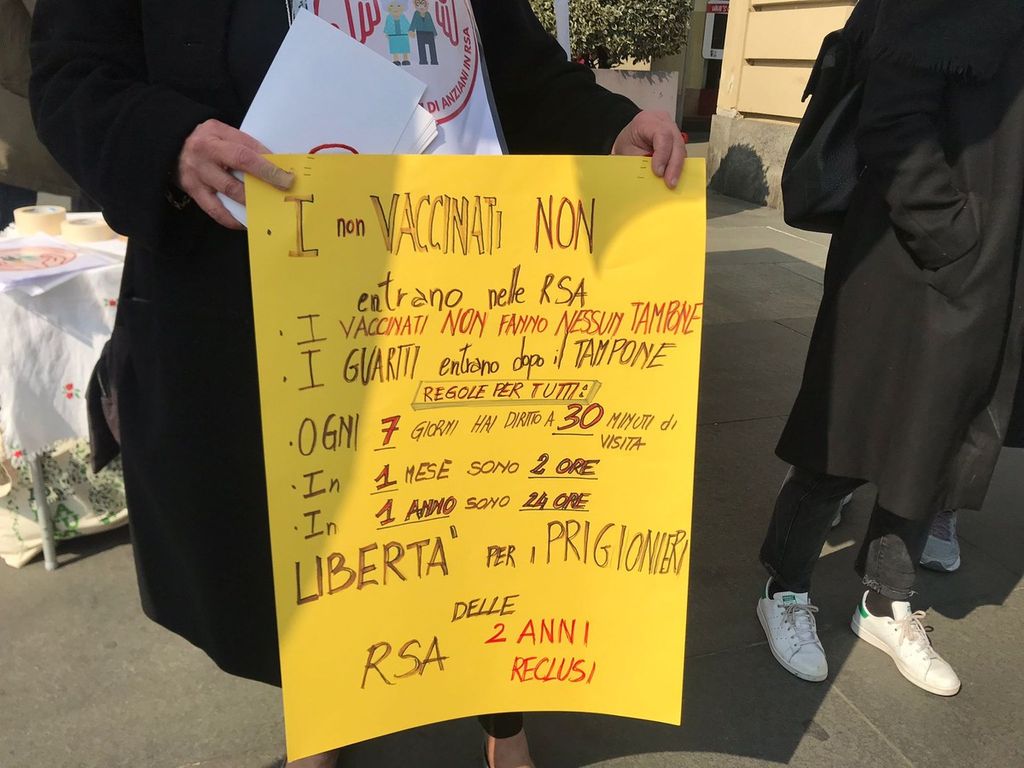 DI ANZIANI IN RSA
· I non VACCINATI NON
entrano nelle RSA
· I VACCINATI NON FANNO NESSUN TAMPONE
· I GUARITI entrano dopo il TAMPONE
REGOLE PER TUTTI:
· OGNI 7 GIORNI HAI DIRITTO A 30 MINUTI di
VISITA
· In 1 MESE SONO 2 ORE
· In 1 ANNO SONO 24 ORE
LIBERTA' PER I PRIGIONIERI
DELLE
RSA 2 ANNI
RECLUSI